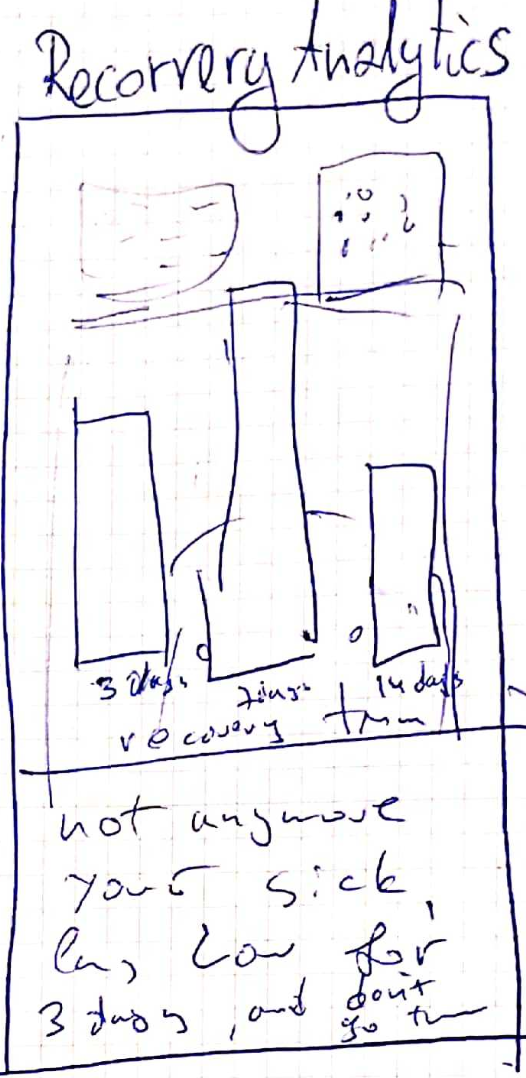 Recorrery Analytics
3 days 7 days 14 days
recovery
not anymore
your sick,
lay low for
3 days, and don't
go